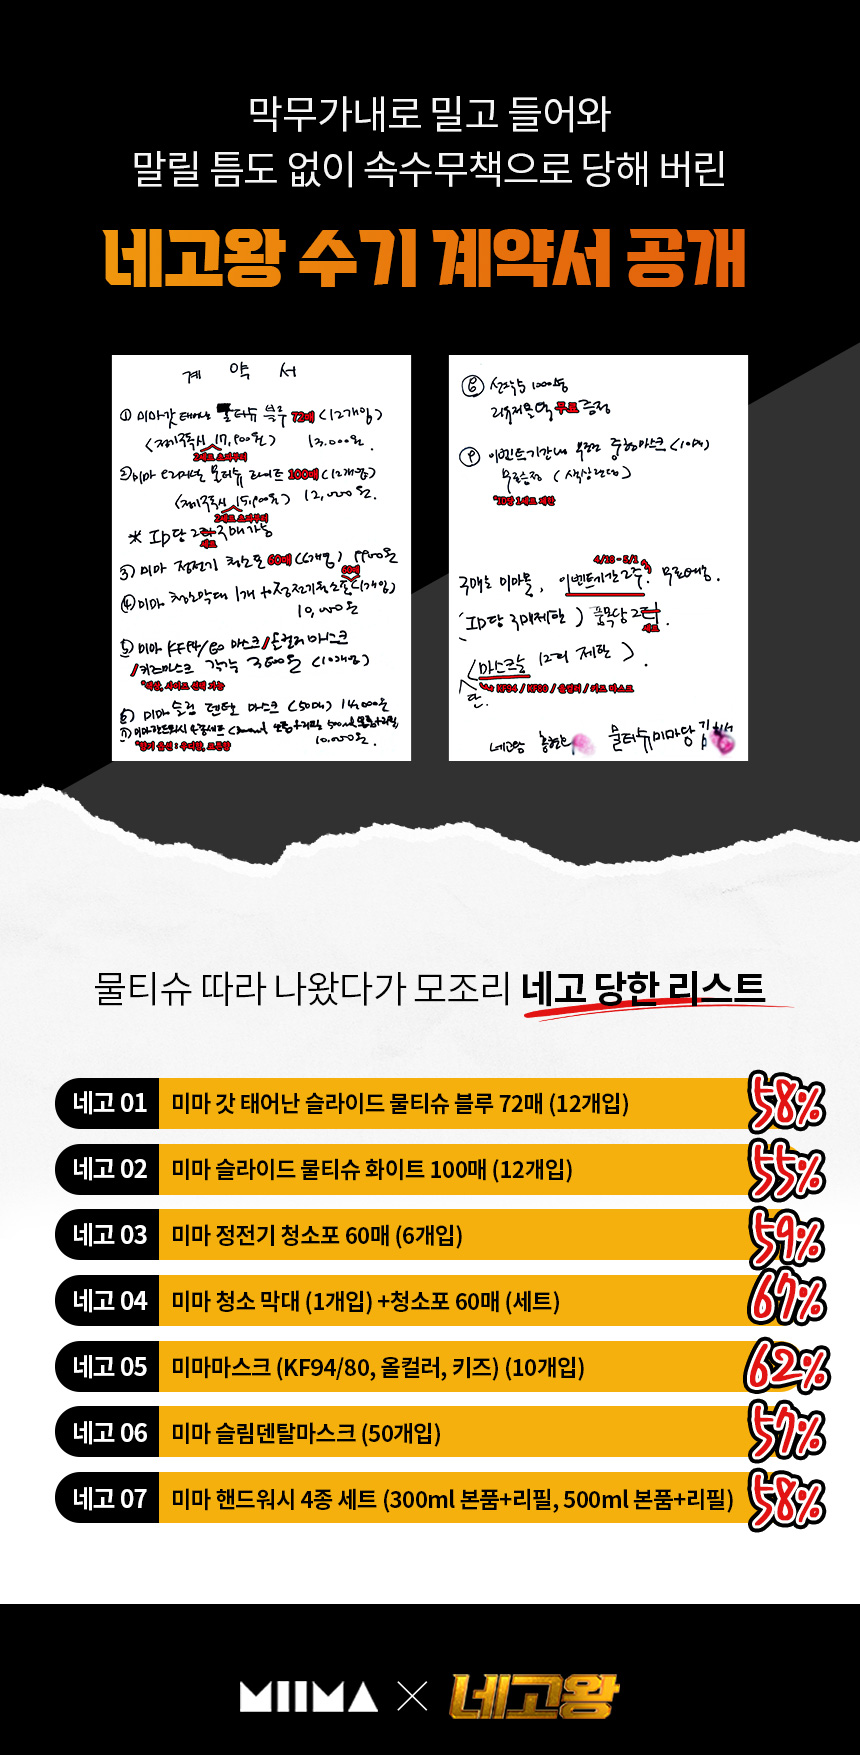 막무가내로 밀고 들어와
말릴 틈도 없이 속수무책으로 당해 버린
네고왕 수기 계약서 공개
계 약 서
① 미마 갓 태어난 물티슈 블루 72매 (12개입)
17,900원) 13,000원.
2세트 초과부터
② 미마 물티슈 100매 (12개입)
15,900원) 12,000원.
2세트 초과부터
* ID당 2 구매가능
세트
③ 미마 정전기 청소포 60매 (6개입) 9900원
60매
④ 미마 청소막대 1개 + 정전기청소포 (1개입)
10,000원
⑤ 미마 KF94/80 마스크 / 올컬러마스크
/ 키즈마스크 각각 3800원 (10개입)
*색상, 사이즈 선택 가능
⑥ 미마 슬림 덴탈 마스크 (50매) 14,000원
⑦ 미마핸드워시
10,000원.
⑧ 선착순 1000명
무료 증정
⑨ 이벤트기간내 중형마스크 (10매)
무료증정 (색상랜덤)
*ID당 1세트 제한
4/18 - 5/1
구매는 미마몰, 이벤트기간 2주? 무료배송.
(ID당 구매제한) 품목당 2
세트
(마스크는 12 제한).
KF94 / KF80 / 올컬러 / 키즈 마스크
단.
네고왕 물티슈미마당
물티슈 따라 나왔다가 모조리 네고 당한 리스트
네고 01 미마 갓 태어난 슬라이드 물티슈 블루 72매 (12개입) 58%
네고 02 미마 슬라이드 물티슈 화이트 100매 (12개입) 55%
네고 03 미마 정전기 청소포 60매 (6개입) 59%
네고 04 미마 청소 막대 (1개입) +청소포 60매 (세트) 67%
네고 05 미마마스크 (KF94/80, 올컬러, 키즈) (10개입) 62%
네고 06 미마 슬림덴탈마스크 (50개입) 57%
네고 07 미마 핸드워시 4종 세트 (300ml 본품+리필, 500ml 본품+리필) 58%
MIIMA × 네고왕